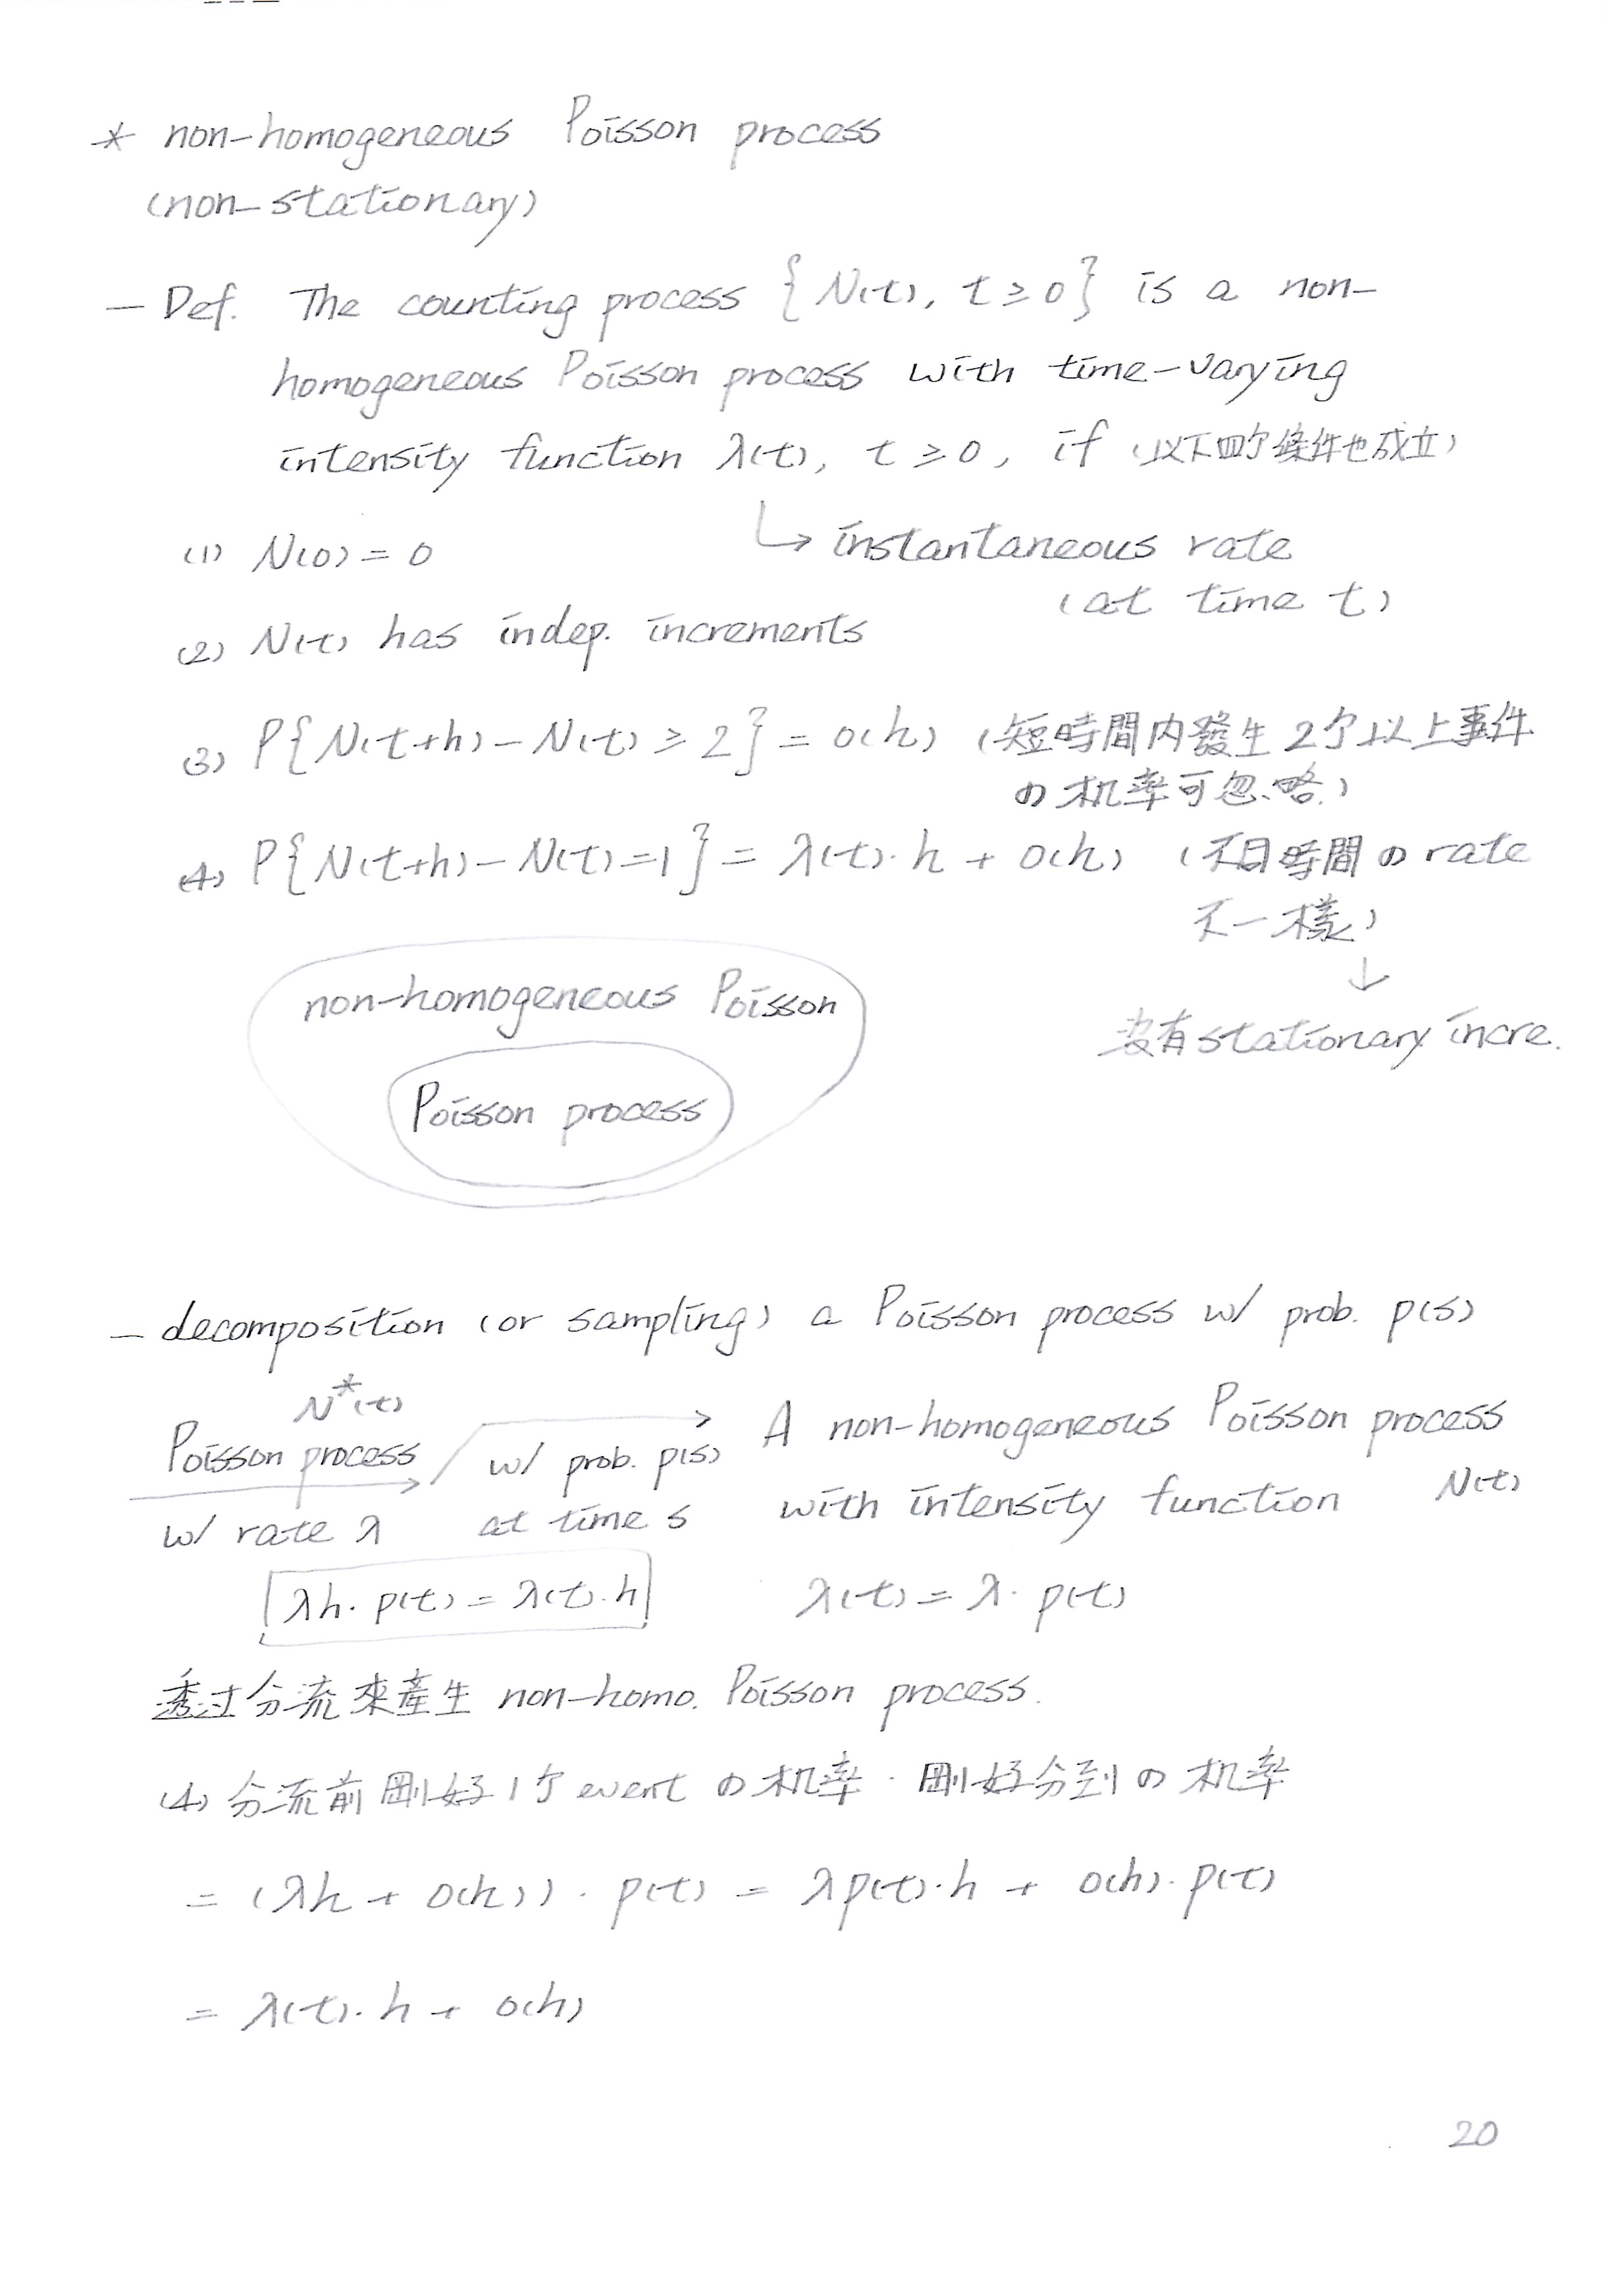 * non-homogeneous Poisson process
(non-stationary)
— Def. The counting process {N(t), t ≥ 0} is a non-
homogeneous Poisson process with time-varying
intensity function λ(t), t ≥ 0, if (以下四个條件也成立)
↳ instantaneous rate
(at time t)
(1) N(0) = 0
(2) N(t) has indep. increments
(3) P{N(t+h) - N(t) ≥ 2} = o(h) (短時間內發生2个以上事件
の机率可忽略)
(4) P{N(t+h) - N(t) = 1} = λ(t)·h + o(h) (不同時間の rate
不一樣)
↓
沒有 stationary incre.
non-homogeneous Poisson
Poisson process
— decomposition (or sampling) a Poisson process w/ prob. p(s)
N*(t)
Poisson process
w/ rate λ
w/ prob. p(s)
at time s
A non-homogeneous Poisson process
with intensity function N(t)
λh·p(t) = λ(t)·h
λ(t) = λ·p(t)
透过分流來產生 non-homo. Poisson process.
(4) 分流前剛好1个event の机率·剛好分到の机率
= (λh + o(h))·p(t) = λp(t)·h + o(h)·p(t)
= λ(t)·h + o(h)
20